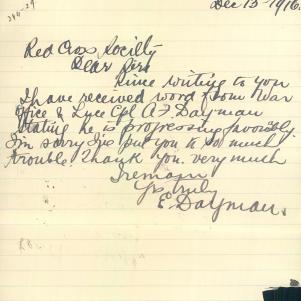 Dec 13-1916
Red Cros Society
Dear Sirs
Since writing to you
I have received word from War
Office & Lnce Cpl A F Dayman
stating he is progressing favoribly
I'm sorry I've put you to so much
trouble. Thank you very much
I remain
Yrs truly
E Dayman.